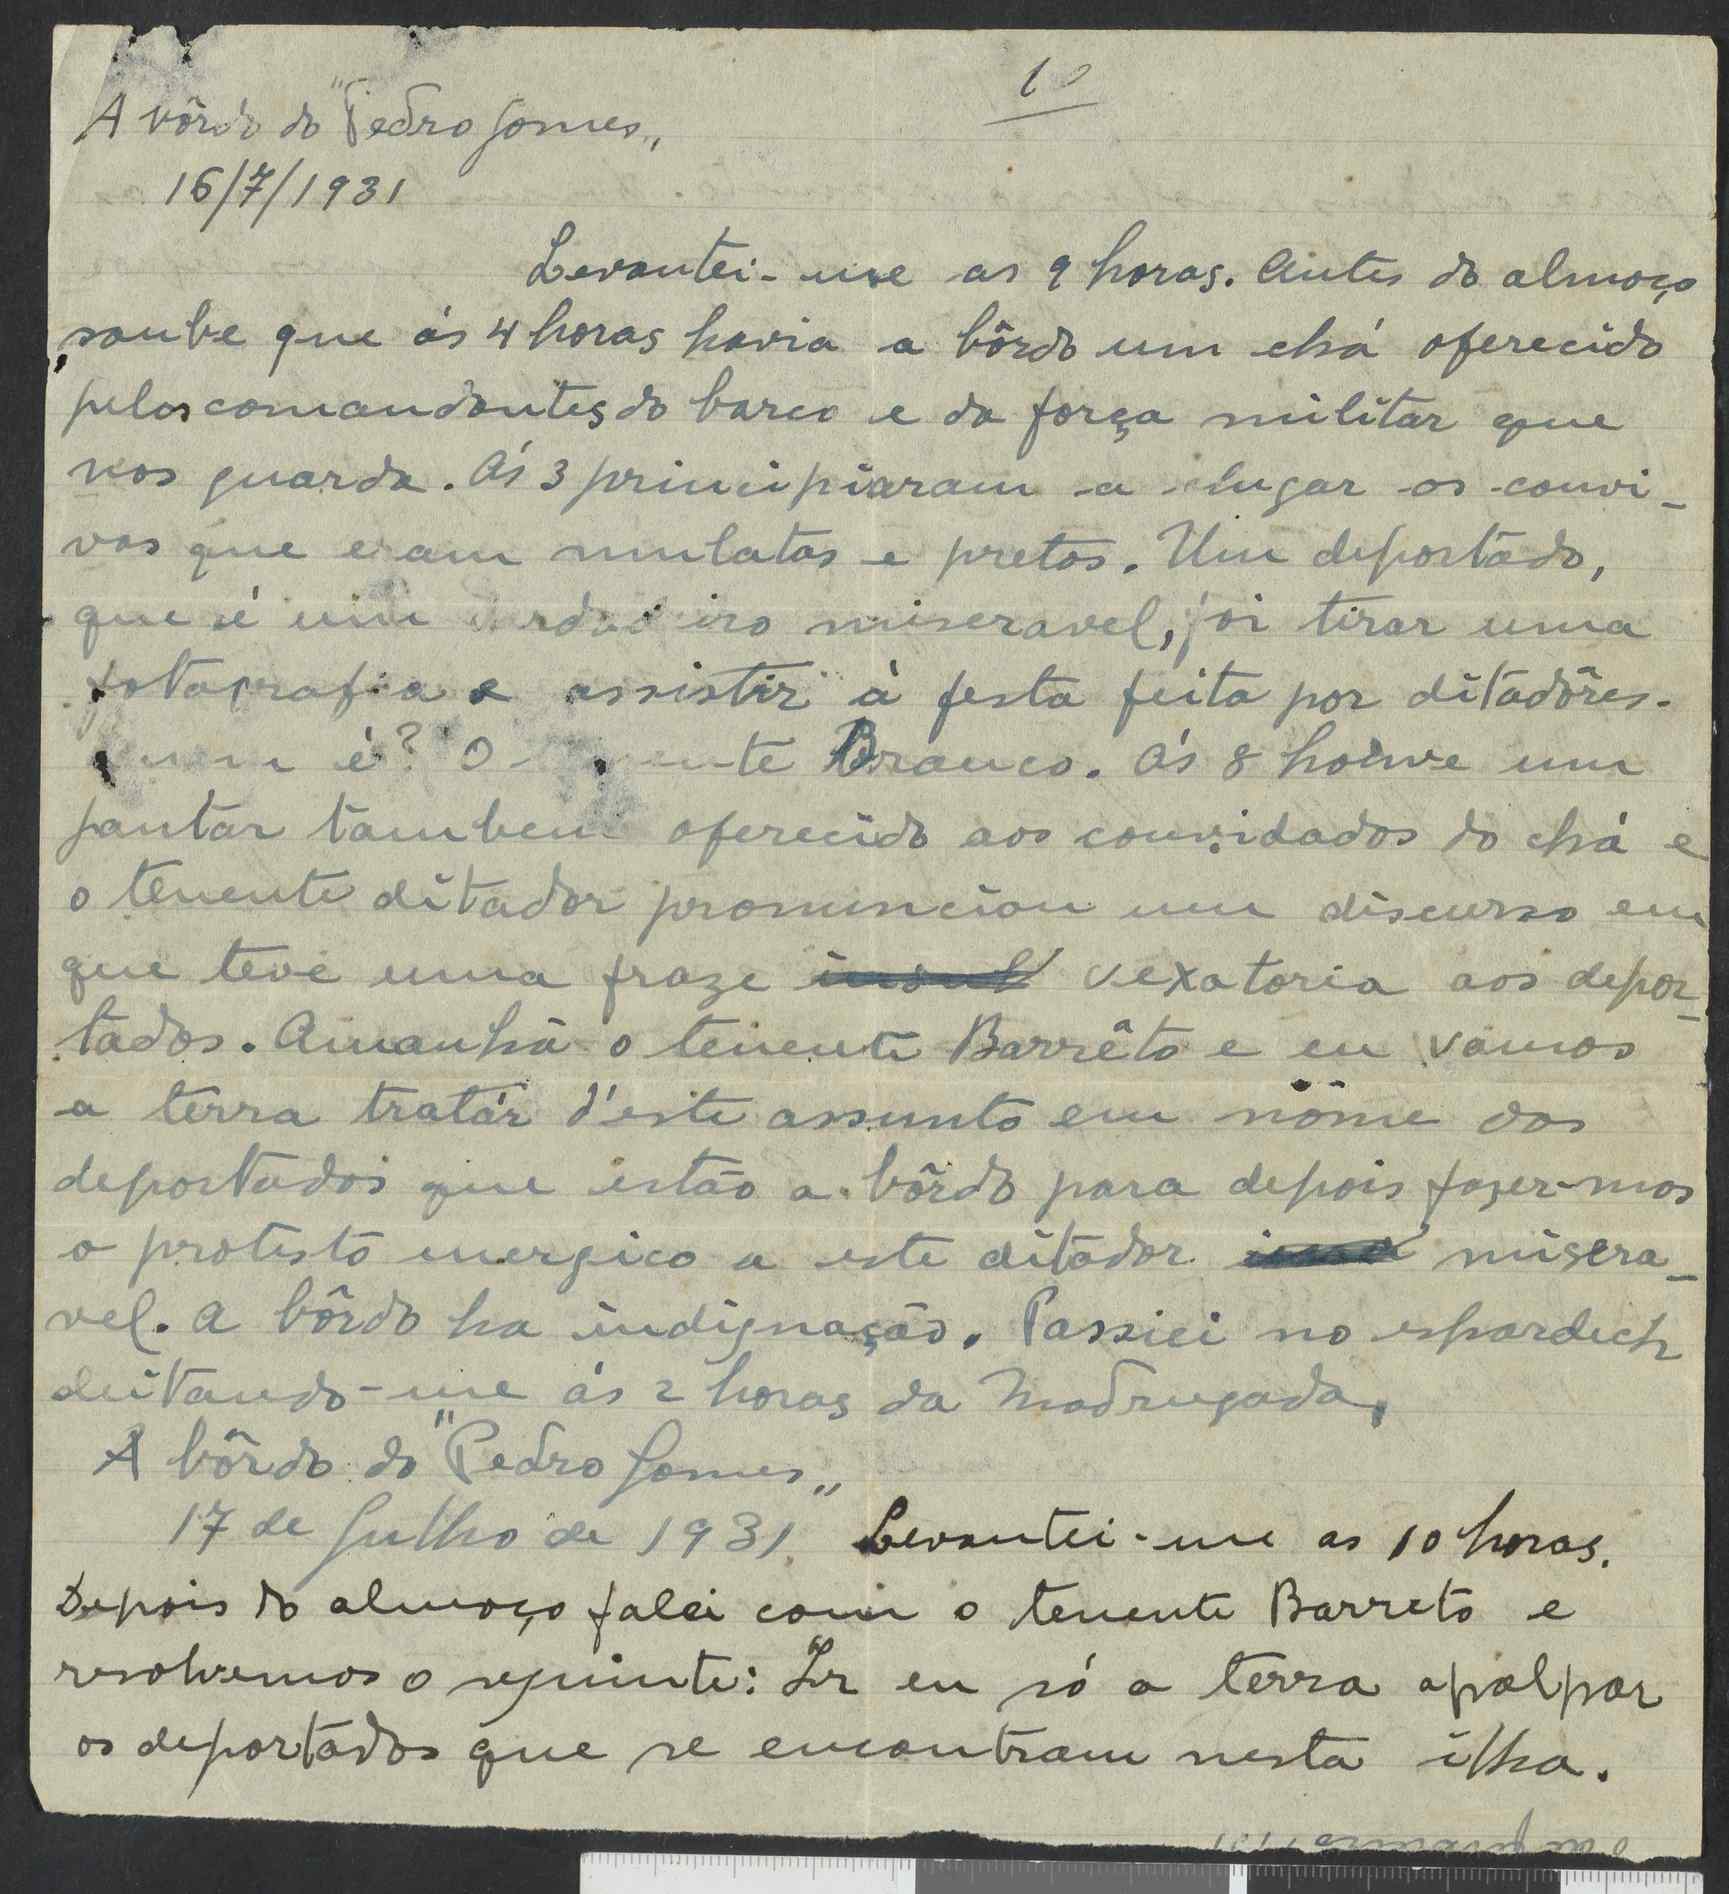 1º
A bôrdo do "Pedro Gomes„
16/7/1931
Levantei-me as 9 horas. Antes do almoço
soube que ás 4 horas havia a bôrdo um chá oferecido
pelos comandantes do barco e da força militar que
nos guarda. Ás 3 principiaram a chegar os convi-
vas que eram mulatas e pretos. Um deportado,
que é um verdadeiro miseravel, foi tirar uma
fotografia e assistir á festa feita por ditadôres.
Quem é? O tenente Branco. Ás 8 houve um
jantar tambem oferecido aos convidados do chá e
o tenente ditador pronunciou um discurso em
que teve uma fraze vexatoria aos depor-
tados. Amanhã o tenente Barrêto e eu vamos
a terra tratár d'este assunto em nôme dos
deportados que estão a bôrdo para depois fazer-mos
o protesto energico a este ditador misera-
vel. A bôrdo ha indignação. Passiei no espardech
deitando-me ás 2 horas da madrugada.
A bôrdo do "Pedro Gomes„
17 de Julho de 1931. Levantei-me as 10 horas.
Depois do almoço falei com o tenente Barreto e
resolvemos o seguinte: Ir eu só a terra apalpar
os deportados que se encontram nesta ilha.